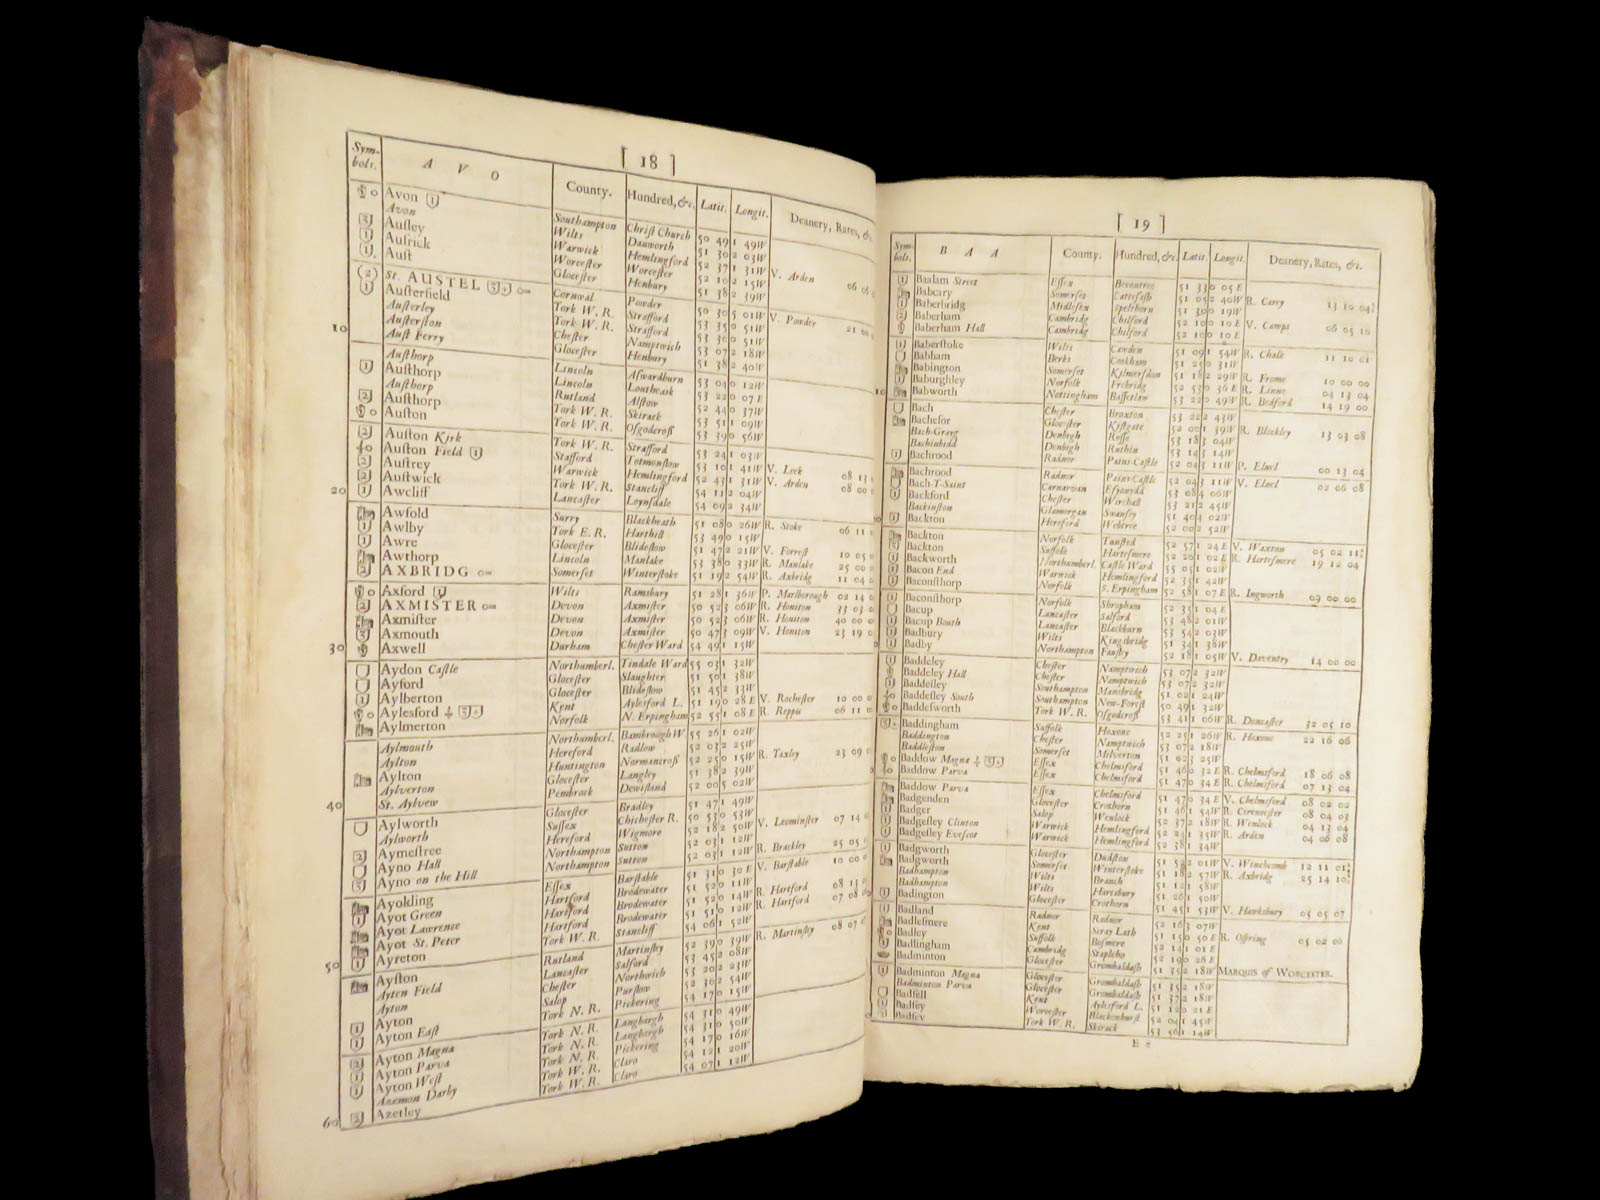 [ 18 ]
Sym-bols. A V O County. Hundred, &c. Latit. Longit. Deanery, Rates, &c.
Avon Southampton Chriſt Church 50 49 1 49W
Avon Wilts Dauworth 51 30 2 03W
Auſley Warwick Hemlingford 52 37 1 31W V. Arden 06 06
Auſrick Worceſter Worceſter 52 10 2 15W
Auſt Gloceſter Henbury 51 38 2 39W
St. AUSTEL Cornwal Powder 50 30 5 01W V. Powder 21 00
Auſterfield York W. R. Strafford 53 35 0 51W
Auſterley York W. R. Strafford 53 30 0 51W
Auſterſton Cheſter Namptwich 53 07 2 18W
10 Auſt Ferry Gloceſter Henbury 51 38 2 40W
Auſthorp Lincoln Aſwardburn 53 04 0 12W
Auſthorp Lincoln Loutheask 53 22 0 07 E
Auſthorp Rutland Alſtow 52 44 0 37W
Auſthorp York W. R. Skirack 53 51 1 09W
Auſton York W. R. Oſgodcroſs 53 39 0 56W
Auſton Kirk York W. R. Strafford 53 24 1 03W
Auſton Field Stafford Totmonſlow 53 10 1 41W V. Leek 08 13
Auſtrey Warwick Hemlingford 52 43 1 31W V. Arden 08 00
Auſtwick York W. R. Stancliff 54 11 2 04W
20 Awcliff Lancaſter Loynſdale 54 09 2 34W
Awfold Surry Blackheath 51 08 0 26W R. Stoke 06 11
Awlby York E. R. Harthill 53 49 0 15W
Awre Gloceſter Blideſlow 51 47 2 21W V. Forreſt 10 05
Awthorp Lincoln Manlake 53 38 0 33W R. Manlake 25 00
AXBRIDG Somerſet Winterſtoke 51 19 2 54W R. Axbridg 11 04
Axford Wilts Ramsbury 51 28 1 36W P. Marlborough 02 14
AXMISTER Devon Axmiſter 50 52 3 06W R. Honiton 33 03
Axmiſter Devon Axmiſter 50 52 3 06W R. Honiton 40 00
Axmouth Devon Axmiſter 50 47 3 09W V. Honiton 23 19
30 Axwell Durham Cheſter Ward 54 49 1 15W
Aydon Caſtle Northumberl. Tindale Ward 55 03 1 32W
Ayford Gloceſter Slaughter 51 50 1 38W
Aylberton Gloceſter Blideſlow 51 45 2 33W
Aylesford Kent Aylesford L. 51 19 0 28 E V. Rocheſter 10 00
Aylmerton Norfolk N. Erpingham 52 55 1 08 E R. Reppis 06 11
Aylmouth Northumberl. Bambrough W. 55 26 1 02W
Aylton Hereford Radlow 52 03 2 25W
Aylton Huntington Normancroſs 52 25 0 15W R. Taxley 23 09
Aylverton Gloceſter Langley 51 38 2 39W
40 St. Aylvew Pembrock Dewiſland 52 00 5 02W
Aylworth Gloceſter Bradley 51 47 1 49W
Aylworth Suſſex Chicheſter R. 50 53 0 53W
Aymeſtree Hereford Wigmore 52 18 2 50W V. Leominſter 07 14
Ayno Hall Northampton Sutton 52 03 1 12W
Ayno on the Hill Northampton Sutton 52 03 1 12W R. Brackley 25 05
Ayokling Eſſex Barſtable 51 31 0 30 E V. Barſtable 10 00
Ayot Green Hartford Brodewater 51 52 0 11W
Ayot Lawrence Hartford Brodewater 51 52 0 14W R. Hartford 08 13
Ayot St. Peter Hartford Brodewater 51 51 0 12W R. Hartford 07 08
50 Ayreton York W. R. Stancliff 54 06 1 52W
Ayſton Rutland Martinſley 52 39 0 39W R. Martinſley 08 07
Ayten Field Lancaſter Salford 53 45 2 08W
Ayton Cheſter Northwich 53 20 2 23W
Ayton Salop Purſlow 52 30 2 54W
Ayton Eaſt York N. R. Pickering 54 17 0 15W
Ayton Magna York N. R. Langbargh 54 31 0 49W
Ayton Parva York N. R. Langbergh 54 31 0 50W
Ayton Weſt York N. R. Pickering 54 17 0 16W
Azemon Darby York W. R. Claro 54 12 1 20W
60 Azetley York W. R. Claro 54 07 1 12W
[ 19 ]
Sym-bols. B A A County. Hundred, &c. Latit. Longit. Deanery, Rates, &c.
Baalam Street Eſſex Becontree 51 33 0 05 E
Babcary Somerſet Catteſaſh 51 05 2 40W R. Carey 13 10 04
Baberbridg Midleſex Spelthorn 51 30 0 19W
Baberham Cambridg Chilford 52 10 0 10 E V. Camps 06 05 10
Baberham Hall Cambridg Chilford 52 10 0 10 E
Baberſtoke Wilts Cawden 51 09 1 54W R. Chalk 11 10 01
Babham Berks Cookham 51 25 0 31W
Babington Somerſet Kilmerſdon 51 18 2 29W R. Frome 10 00 00
Baburghley Norfolk Frebridg 52 53 0 36 E R. Linne 04 13 04
10 Babworth Nottingham Baſſetlaw 53 22 0 49W R. Bedford 14 19 00
Bach Cheſter Broxton 53 22 2 43W
Bacheſor Gloceſter Kiftgate 52 00 1 39W R. Blockley 13 03 08
Bach-Graig Denbigh Roſſe 53 18 3 04W
Bachinbidd Denbigh Ruthin 53 14 3 14W
Bachrood Radnor Pains-Caſtle 52 04 3 11W P. Elwel 00 13 04
Bachrood Radnor Pains-Caſtle 52 04 3 11W V. Elwel 02 06 08
Bach-T-Saint Carnarvan Efyonydd 53 08 4 06W
Backford Cheſter Wirehall 53 21 2 45W
Backinſton Glamorgan Swanſey 51 40 4 02W
Backton Hereford Webtree 52 00 2 52W
Backton Norfolk Tunſted 52 57 1 24 E V. Waxton 05 02 11
Backton Suffolk Harteſmere 52 20 1 02 E R. Harteſmere 19 12 04
Backworth Northumberl. Caſtle Ward 55 05 1 02W
Bacon End Warwick Hemlingford 52 35 1 42W
Baconſthorp Norfolk S. Erpingham 52 58 1 07 E R. Ingworth 09 00 00
Baconſthorp Norfolk Shropham 52 35 1 04 E
Bacup Lancaſter Salford 53 48 2 01W
Bacup Bouth Lancaſter Blackburn 53 54 2 03W
Badbury Wilts Kingsbridg 51 34 1 38W
Badby Northampton Fauſley 52 18 1 05W V. Daventry 14 00 00
Baddeley Cheſter Namptwich 53 07 2 32W
Baddeley Hall Cheſter Namptwich 53 07 2 32W
Baddeſley Southampton Mansbridg 51 02 1 24W
Baddeſley South Southampton New-Foreſt 50 49 1 32W
Baddeſworth York W. R. Oſgodcroſs 53 41 1 06W R. Doncaſter 32 05 10
Baddingham Suffolk Hoxone 52 25 1 26W R. Hoxone 22 16 06
Baddington Cheſter Namptwich 53 07 2 18W
Baddleſton Somerſet Milverton 51 02 3 25W
Baddow Magna Eſſex Chelmsford 51 46 0 32 E R. Chelmsford 18 06 08
Baddow Parva Eſſex Chelmsford 51 47 0 34 E R. Chelmsford 07 13 04
Baddow Parva Eſſex Chelmsford 51 47 0 34 E V. Chelmsford 08 02 02
Badgenden Gloceſter Crothorn 51 46 1 54W R. Cirenceſter 08 04 03
Badger Salop Wenlock 52 37 2 18W R. Wenlock 04 13 04
Badgeſley Clinton Warwick Hemlingford 52 24 1 35W R. Arden 04 06 08
Badgeſley Eveſcot Warwick Hemlingford 52 38 1 34W
Badgworth Gloceſter Dudſton 51 52 2 01W V. Winchcomb 12 11 01
Badgworth Somerſet Winterſtoke 51 18 2 57W R. Axbridg 25 14 10
Badhampton Wilts Branch 51 12 1 58W
Badhampton Wilts Haresbury 51 26 1 50W
Badington Gloceſter Crothorn 51 45 1 53W V. Hawksbury 05 05 07
Badland Radnor Radnor 52 16 3 07W
Badleſmere Kent Scray Lath 51 15 0 50 E R. Oſpring 05 02 00
Badley Suffolk Boſmere 52 14 1 01 E
Badlingham Cambridg Stapleho 52 19 0 26 E
Badminton Gloceſter Grombaldaſh 51 35 2 18W MARQUIS of WORCESTER.
Badminton Magna Gloceſter Grombaldaſh 51 35 2 18W
Badminton Parva Gloceſter Grombaldaſh 51 37 2 18W
Badſell Kent Aylesford L. 51 12 0 21 E
Badſey Worceſter Blackenhurſt 52 04 1 45W
Badſey York W. R. Skirack 53 56 1 14W
E 2